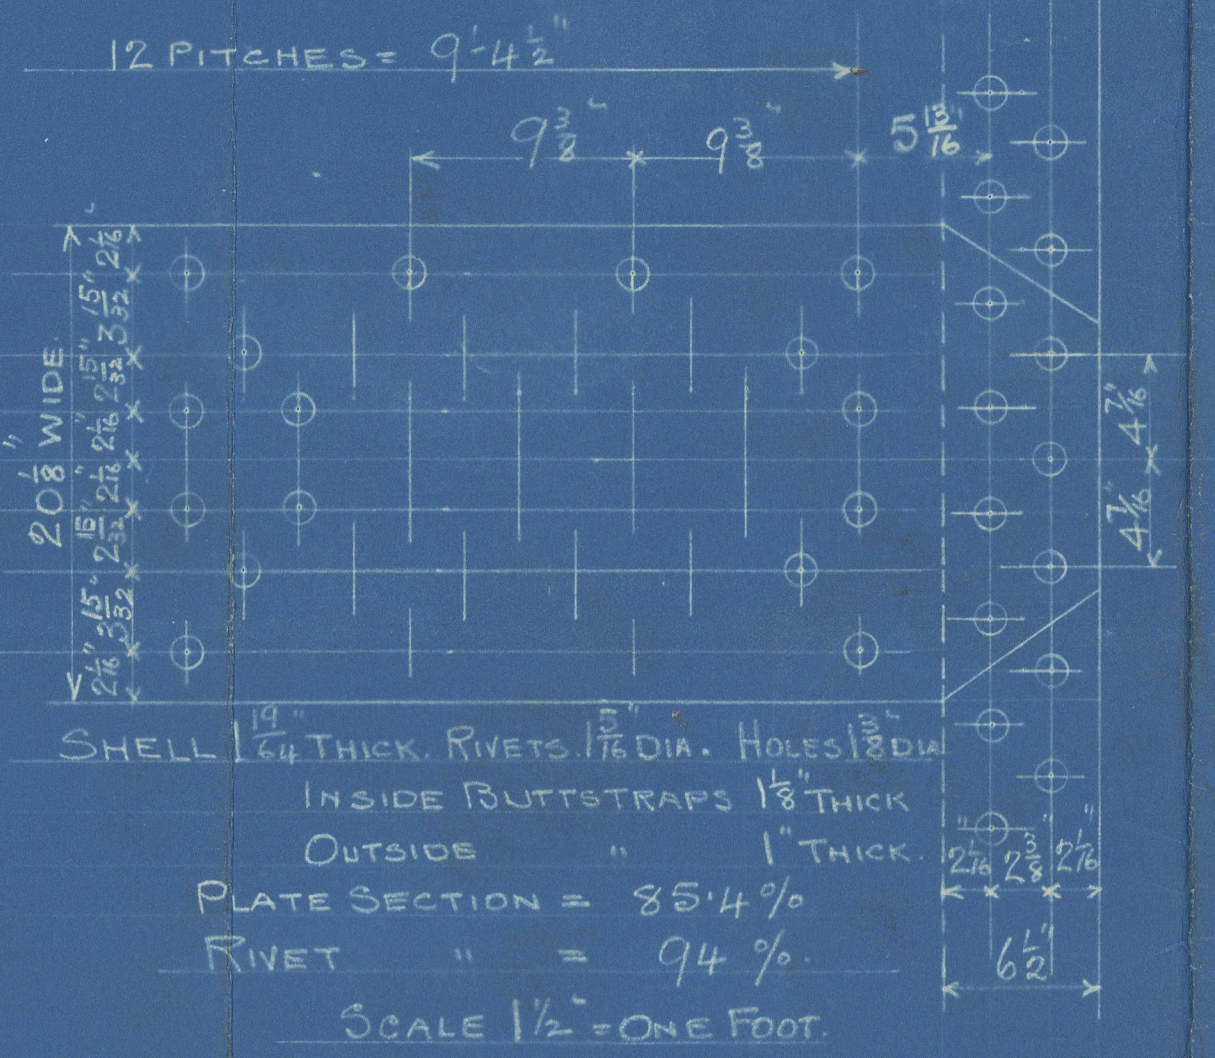 12 PITCHES = 9'-4 1/2"
9 3/8" 9 3/8" 5 13/16"
20 1/8" WIDE
2 1/16" 3 15/32" 2 15/32" 2 1/16" 2 1/16" 2 15/32" 3 15/32" 2 1/16"
4 7/16" 4 7/16"
SHELL 1 19/64" THICK. RIVETS. 1 5/16" DIA. HOLES 1 3/8" DIA
INSIDE BUTTSTRAPS 1 1/8" THICK
OUTSIDE " 1" THICK.
2 1/16" 2 3/8" 2 1/16"
PLATE SECTION = 85.4 %
RIVET " = 94 %.
6 1/2"
SCALE 1 1/2" = ONE FOOT.